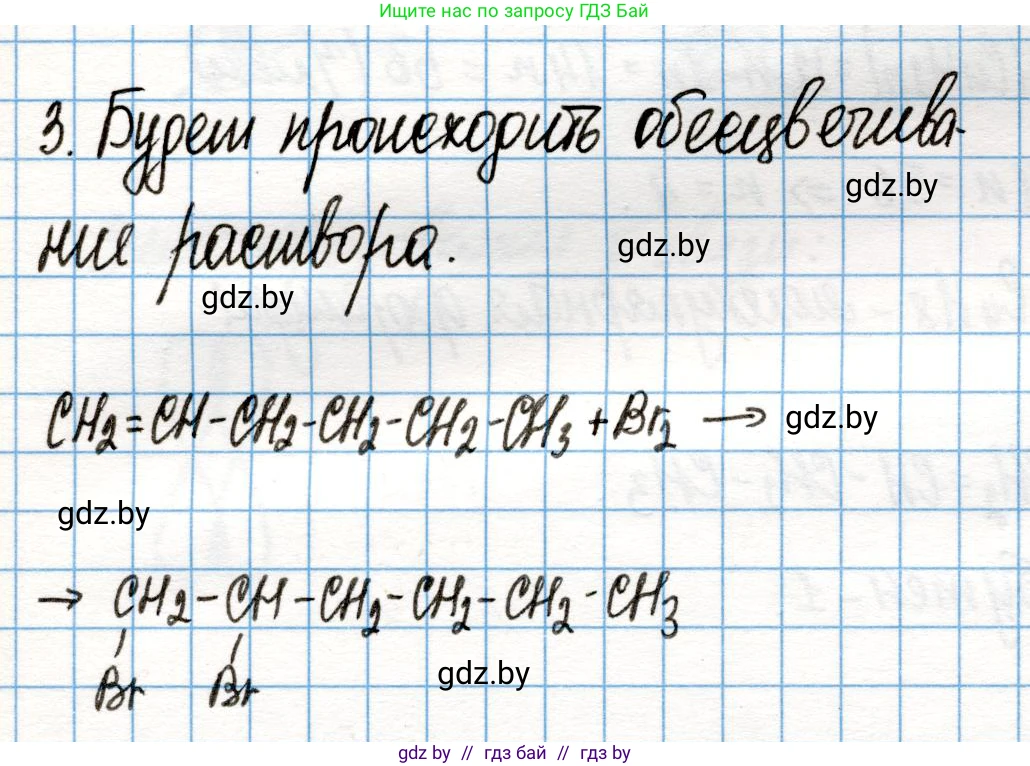 Ищите нас по запросу ГДЗ Бай
3. Будет происходить обесцвечива-
gdz.by
ние раствора.
gdz.by
gdz.by
CH₂=CH-CH₂-CH₂-CH₂-CH₃+Br₂ →
gdz.by
gdz.by
→ CH₂-CH-CH₂-CH₂-CH₂-CH₃
Br Br
gdz.by
gdz by // гдз бай // гдз by